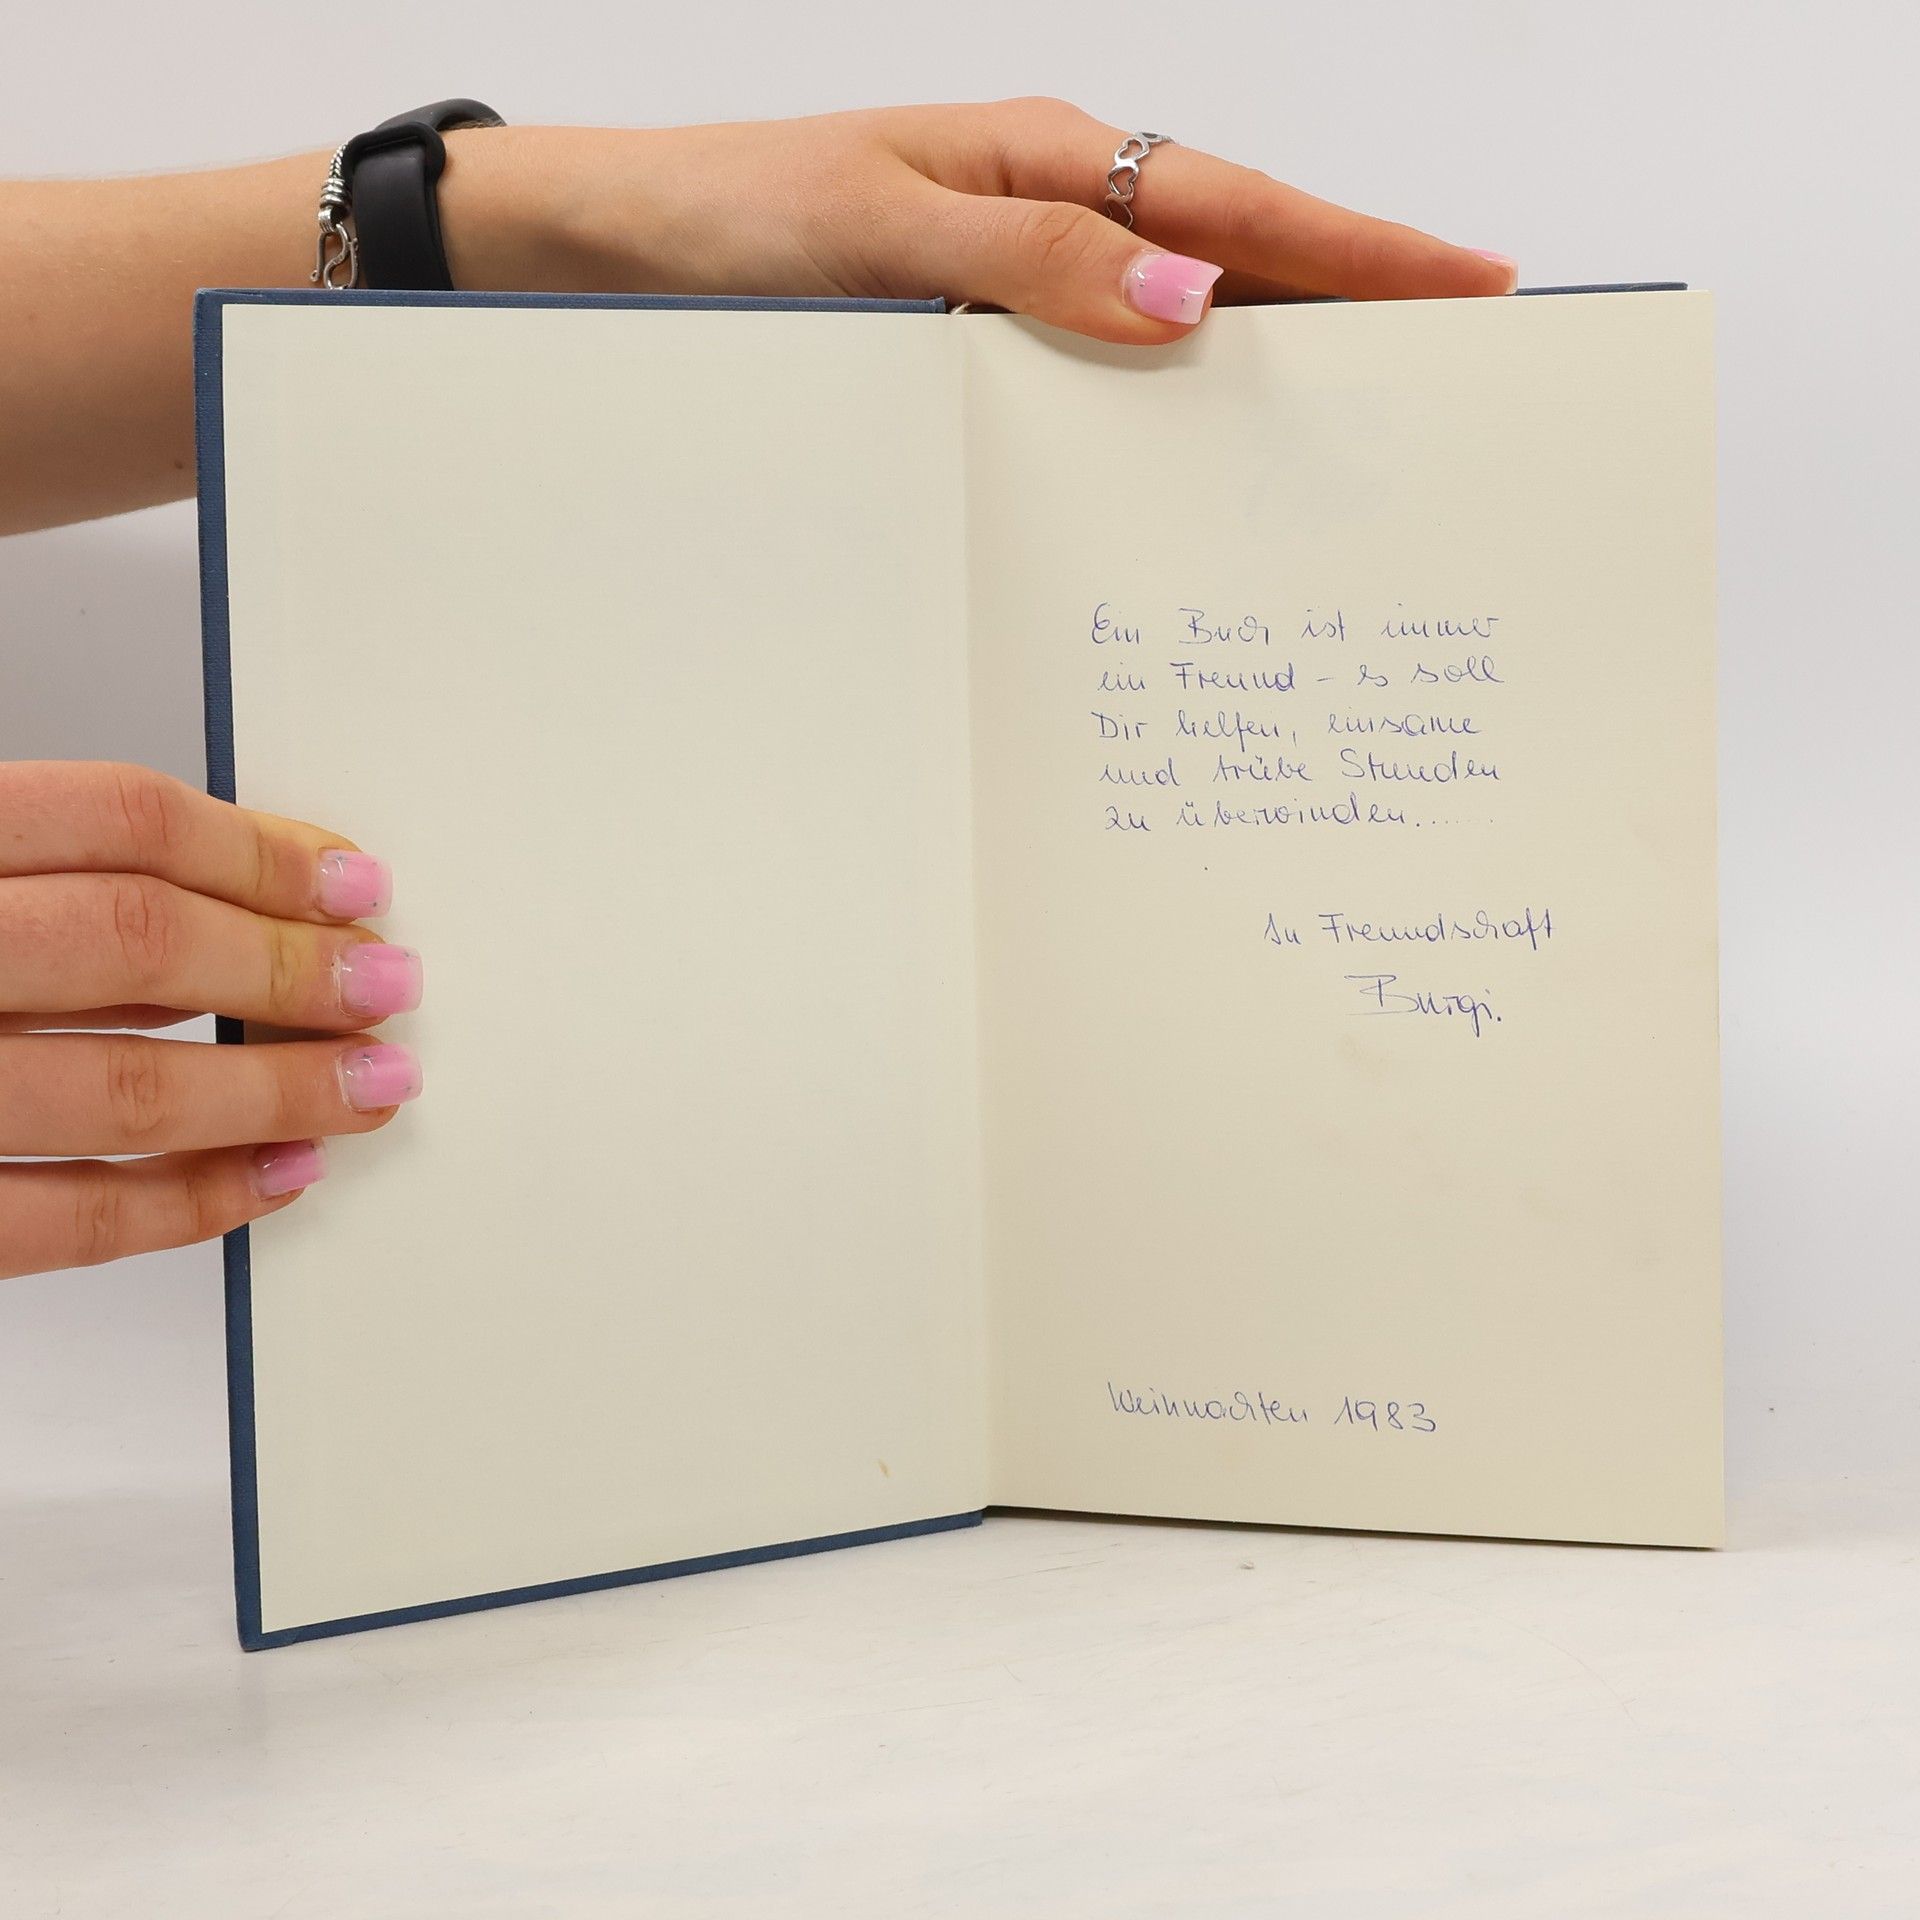 Ein Buch ist immer
ein Freund - es soll
Dir helfen, einsame
und trübe Stunden
zu überwinden.......
In Freundschaft
Burgi.
Weihnachten 1983